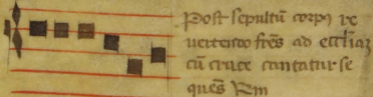 Post sepultū corpꝰ re
uertendo fr̄es ad eccłiaꝫ
cū cruce cantatur se
quēs Rm̄